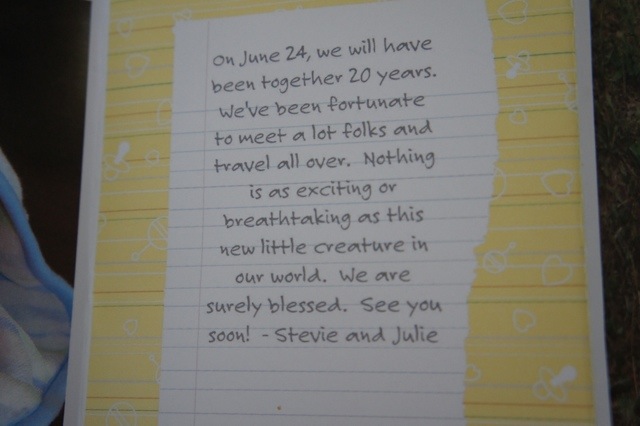 On June 24, we will have
been together 20 years.
We've been fortunate
to meet a lot folks and
travel all over. Nothing
is as exciting or
breathtaking as this
new little creature in
our world. We are
surely blessed. See you
soon! - Stevie and Julie